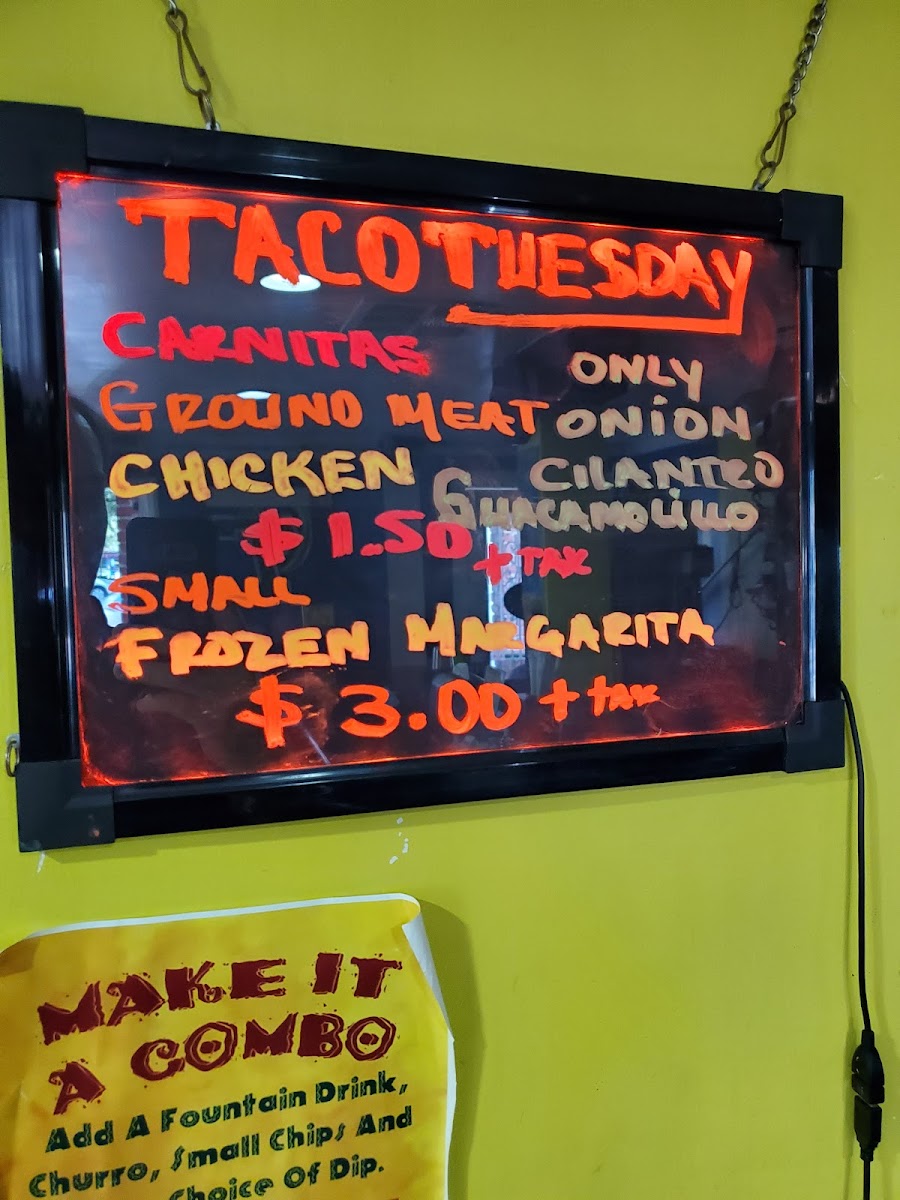 TACO TUESDAY
CARNITAS
GROUND MEAT
CHICKEN
ONLY
ONION
CILANTRO
GUACAMOLILLO
$1.50 + TAX
SMALL
FROZEN MARGARITA
$3.00 + tax
MAKE IT
A COMBO
Add A Fountain Drink,
Churro, Small Chips And
Choice Of Dip.